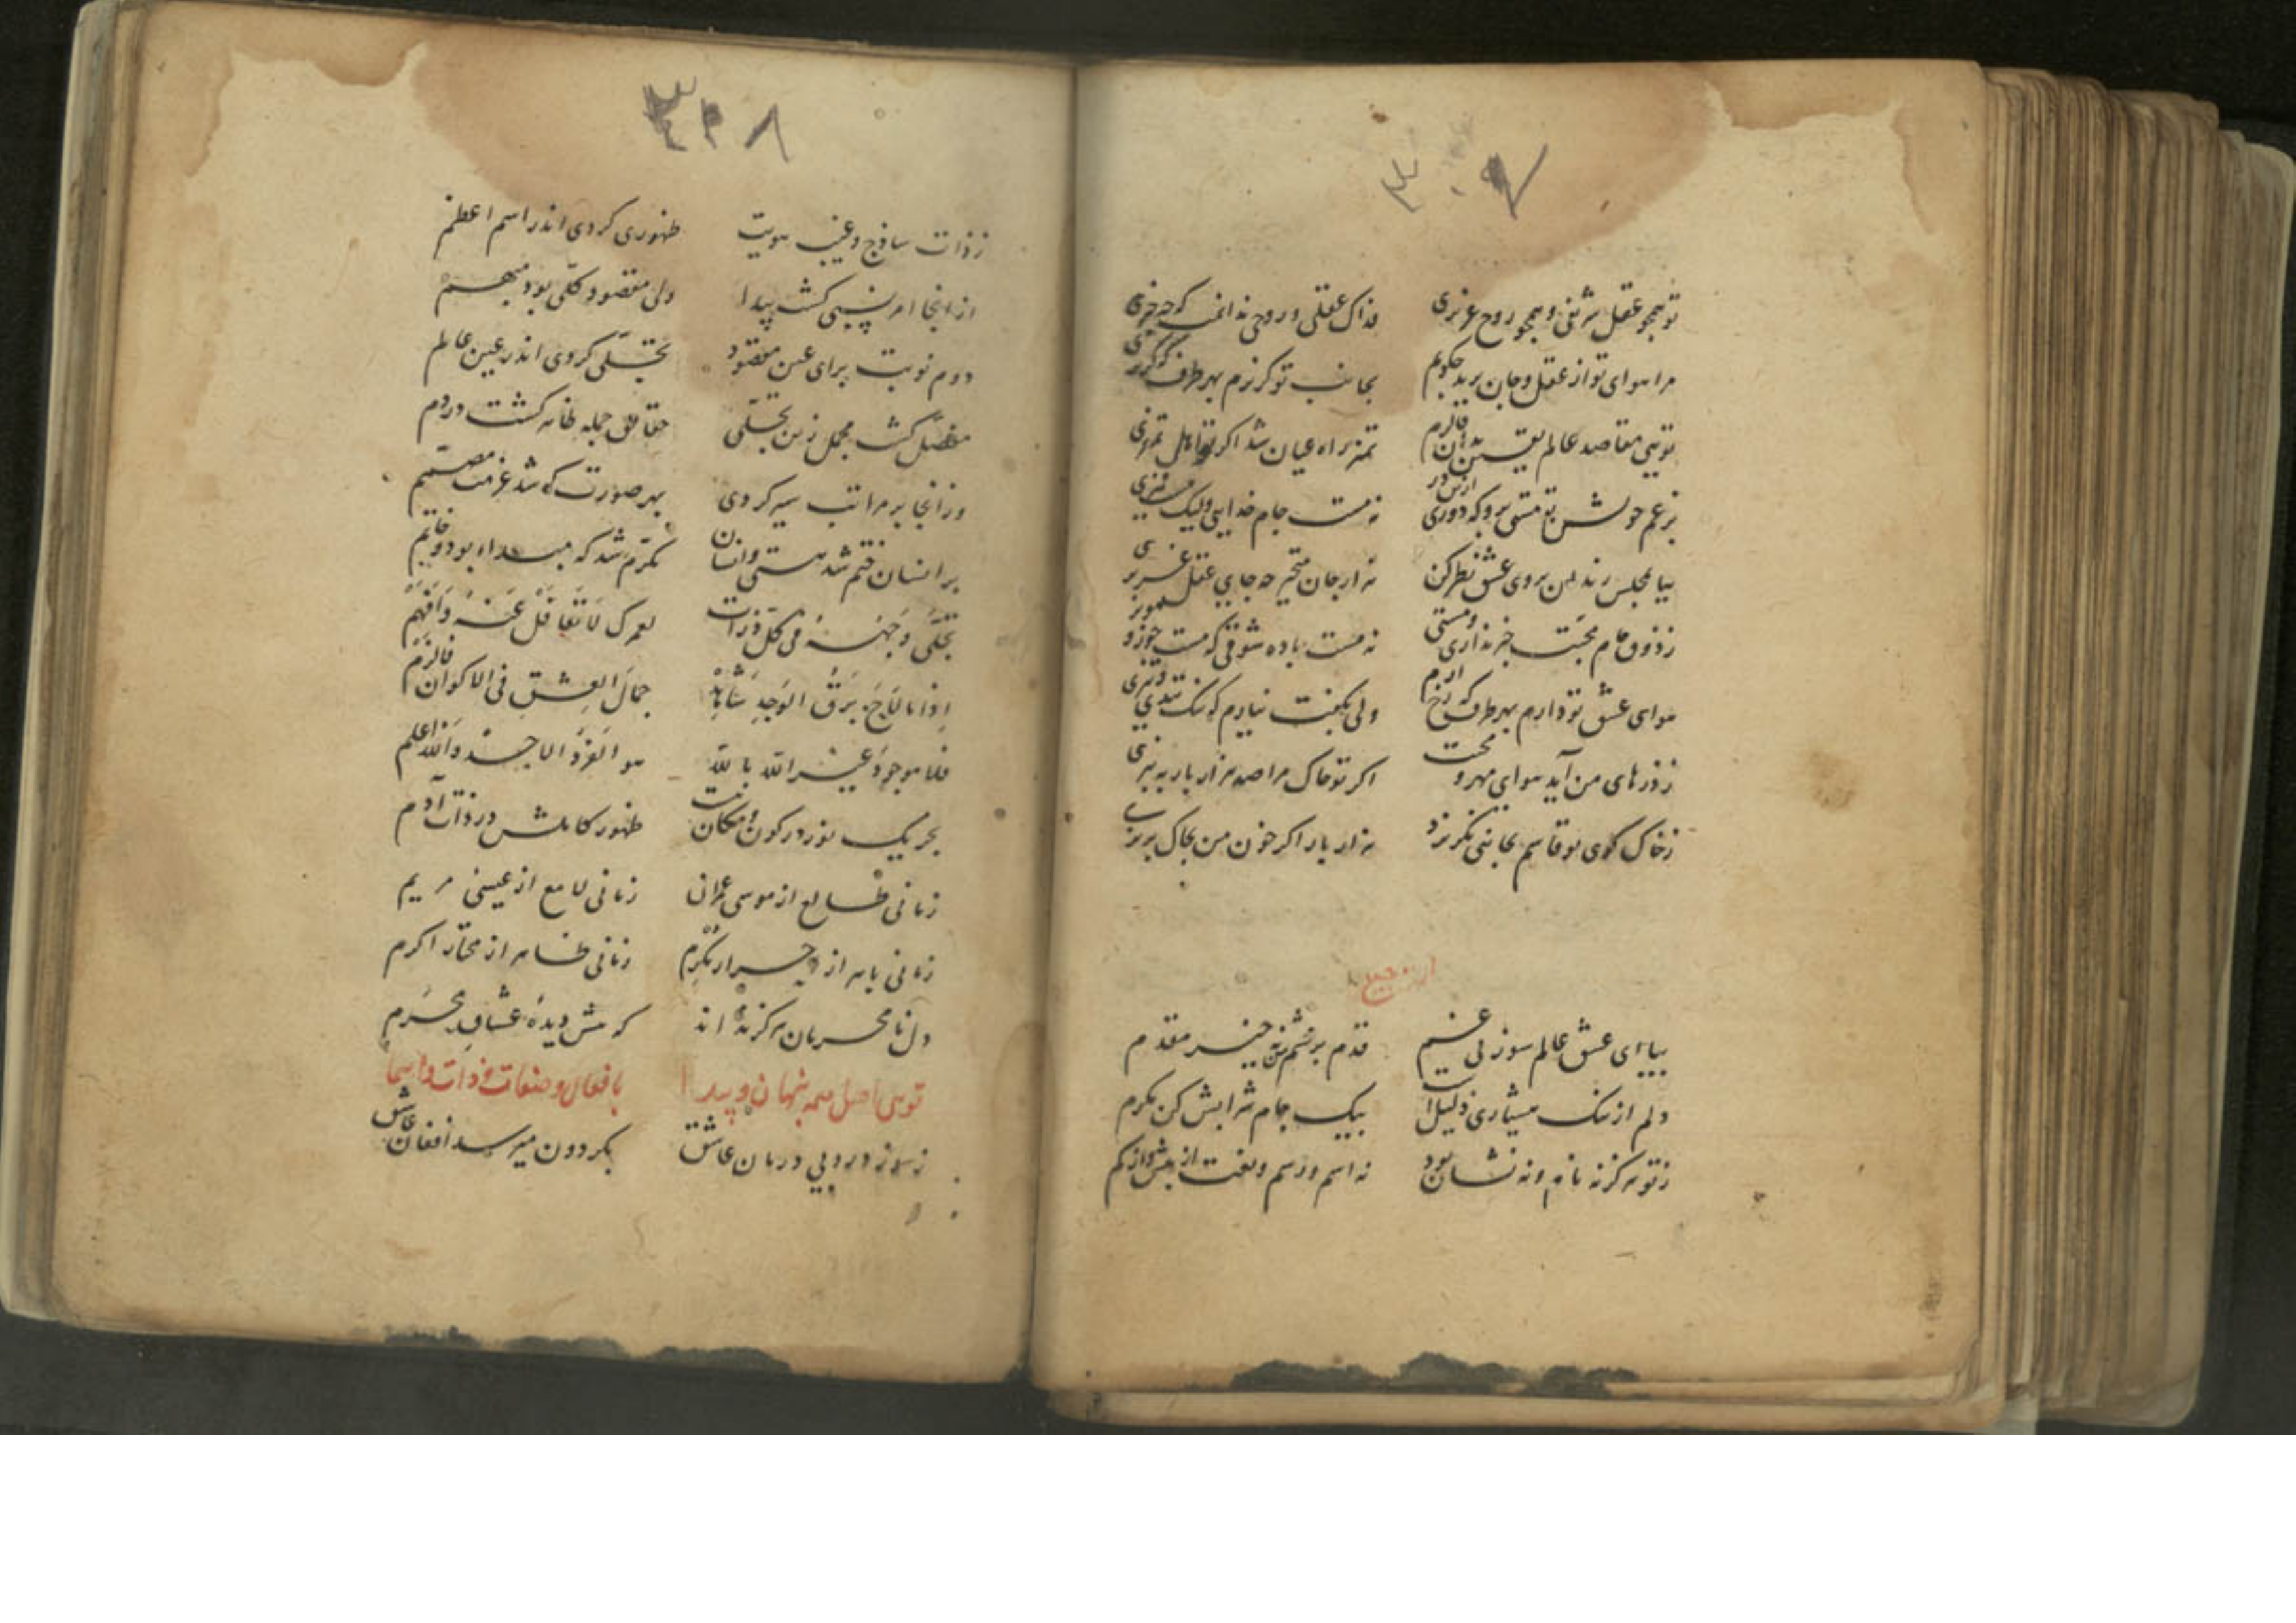 ۳۰۷
تو همچو عقل شریفی و همچو روح عزیزی فداک عقلی و روحی ندانمت که چه چیزی
مرا هوای تو از عقل و جان برید چگویم بجانب تو گریزم بهر طرف که گریزی
تویی مقاصد عالم یقین بدان تمیز راه عیان شد اگر تو اهل تمیزی
بزعم خویش نه مستی برو که دوری ازین در نه مست جام خدایی ولیک مست
بیا بمجلس رندان بروی عشق نظر کن نه از جان متحیر چه جای عقل غریزی
ز ذوق جام محبت خبر نداری و مستی نه مست باده شوقی که مست جوز و مویزی
هوای عشق تو دارم بهر طرف که رخ آرم ولی بگفت نیارم که تند و تیزی
ز ذرهای من آید هوای مهر و محبت اگر تو خاک مرا صد هزار بار ببیزی
ز خاک کوی تو قاسم بجانبی نگریزد هزار بار اگر خون من بخاک بریزی
بیا ای عشق عالم سوز بی غم قدم بر چشم نه خیر مقدم
دلم از ننگ هشیاری ذلیل است بیک جام شرابش کن مکرم
ز تو هرگز نه نام و نه نشان بود نه اسم و رسم و نعت از بیش و از کم
۳۰۸
ز ذات ساذج و غیب هویت ظهوری کردی اندر اسم اعظم
از اینجا امر نسبی گشت پیدا ولی مقصود کلی بود مبهم
دوم نوبت برای عین مقصود تجلی کردی اندر عین عالم
مفصل گشت مجمل زین تجلی حقایق جمله ظاهر گشت در دم
وز آنجا بر مراتب سیر کردی بهر صورت که شد عزمت مصمم
بر انسان ختم شد هستی و انسان مکرم شد که مبداء بود و خاتم
تجلی وجهه فی کل ذرات لعمرک لا تغافل عنه وافهم
اذا ما لاح برق الوجد شاهد جمال العشق فی الاکوان فالزم
فلا موجود غیر الله بالله هو الفرد الاحد والله اعلم
بجز یک نور در کون و مکان نیست ظهور کاملش در ذات آدم
زمانی طالع از موسی عمران زمانی لامع از عیسی مریم
زمانی باهر از مکرم زمانی ظاهر از مختار اکرم
دل نامحرمان هرگز نداند که مش دیده عشاق محرم
تویی اصل همه پنهان و پیدا بافعال و صفات و ذات و اسما
ز سوز درد بی درمان عاشق بگردون میرسد افغان عاشق